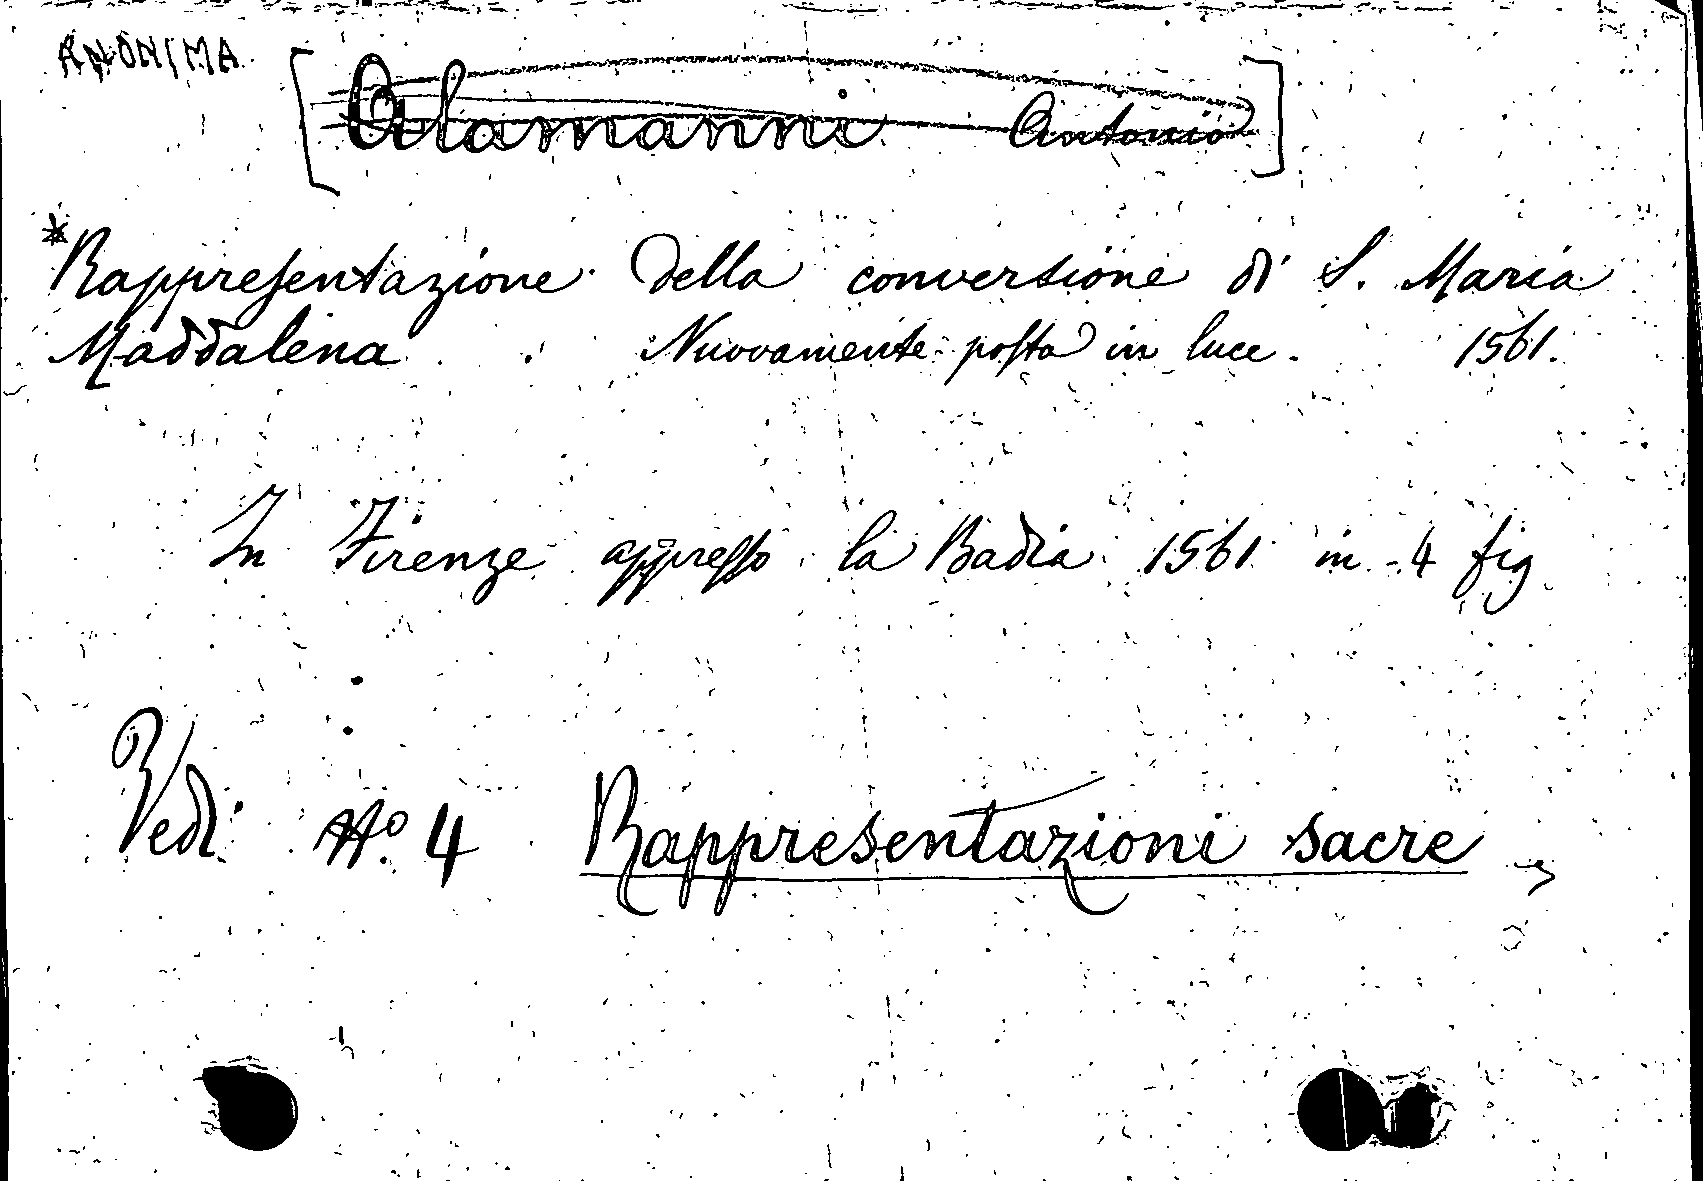 ANONIMA
[Alamanni Antonio]
*Rappresentazione della conversione di S. Maria
Maddalena. Nuovamente posta in luce. 1561.
In Firenze appresso la Badia 1561 in-4 fig
Vedi No. 4 Rappresentazioni sacre